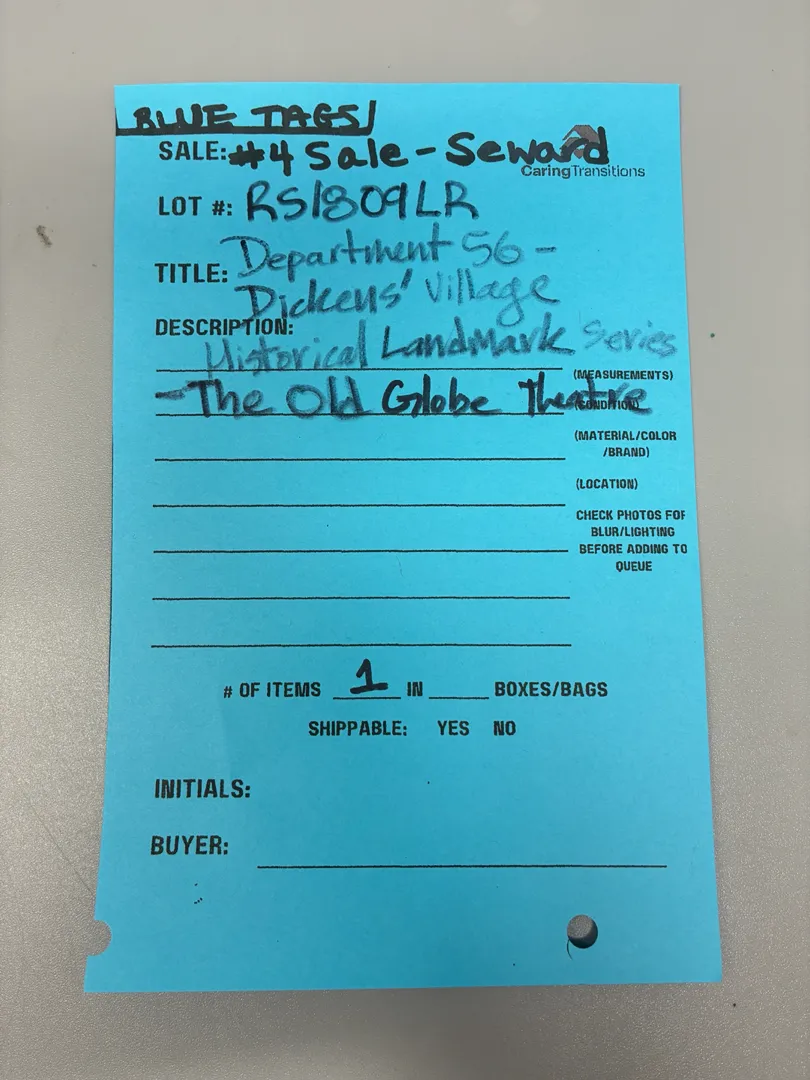 BLUE TAGS
SALE: #4 Sale - Seward
CaringTransitions
LOT #: RS1809LR
TITLE: Department 56 -
Dickens' Village
DESCRIPTION:
Historical Landmark Series
(MEASUREMENTS)
- The Old Globe Theatre
(CONDITION)
(MATERIAL/COLOR
/BRAND)
(LOCATION)
CHECK PHOTOS FOR
BLUR/LIGHTING
BEFORE ADDING TO
QUEUE
# OF ITEMS 1 IN ____ BOXES/BAGS
SHIPPABLE: YES NO
INITIALS:
BUYER: